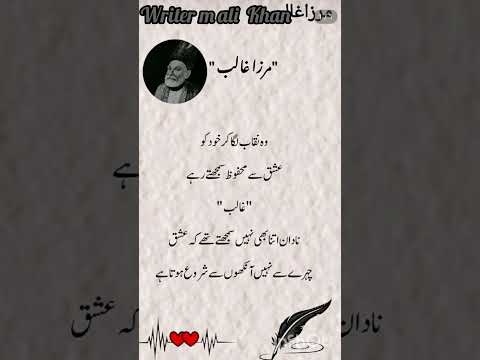 Writer m ali Khan
مرزا غالب
"مرزا غالب"
وہ نقاب لگا کر خود کو
عشق سے محفوظ سمجھتے رہے
"غالب"
نادان اتنا بھی نہیں سمجھتے تھے کہ عشق
چہرے سے نہیں آنکھوں سے شروع ہوتا ہے